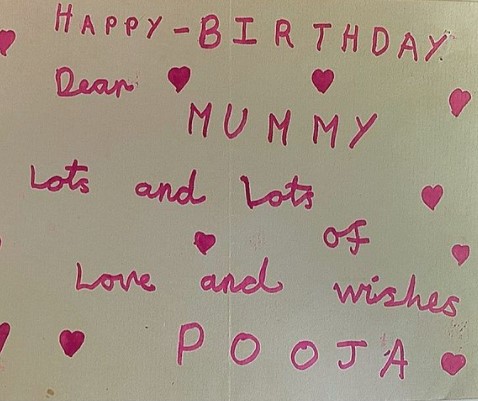 HAPPY-BIRTHDAY
Dear
MUMMY
Lots and Lots
of
Love and wishes
POOJA